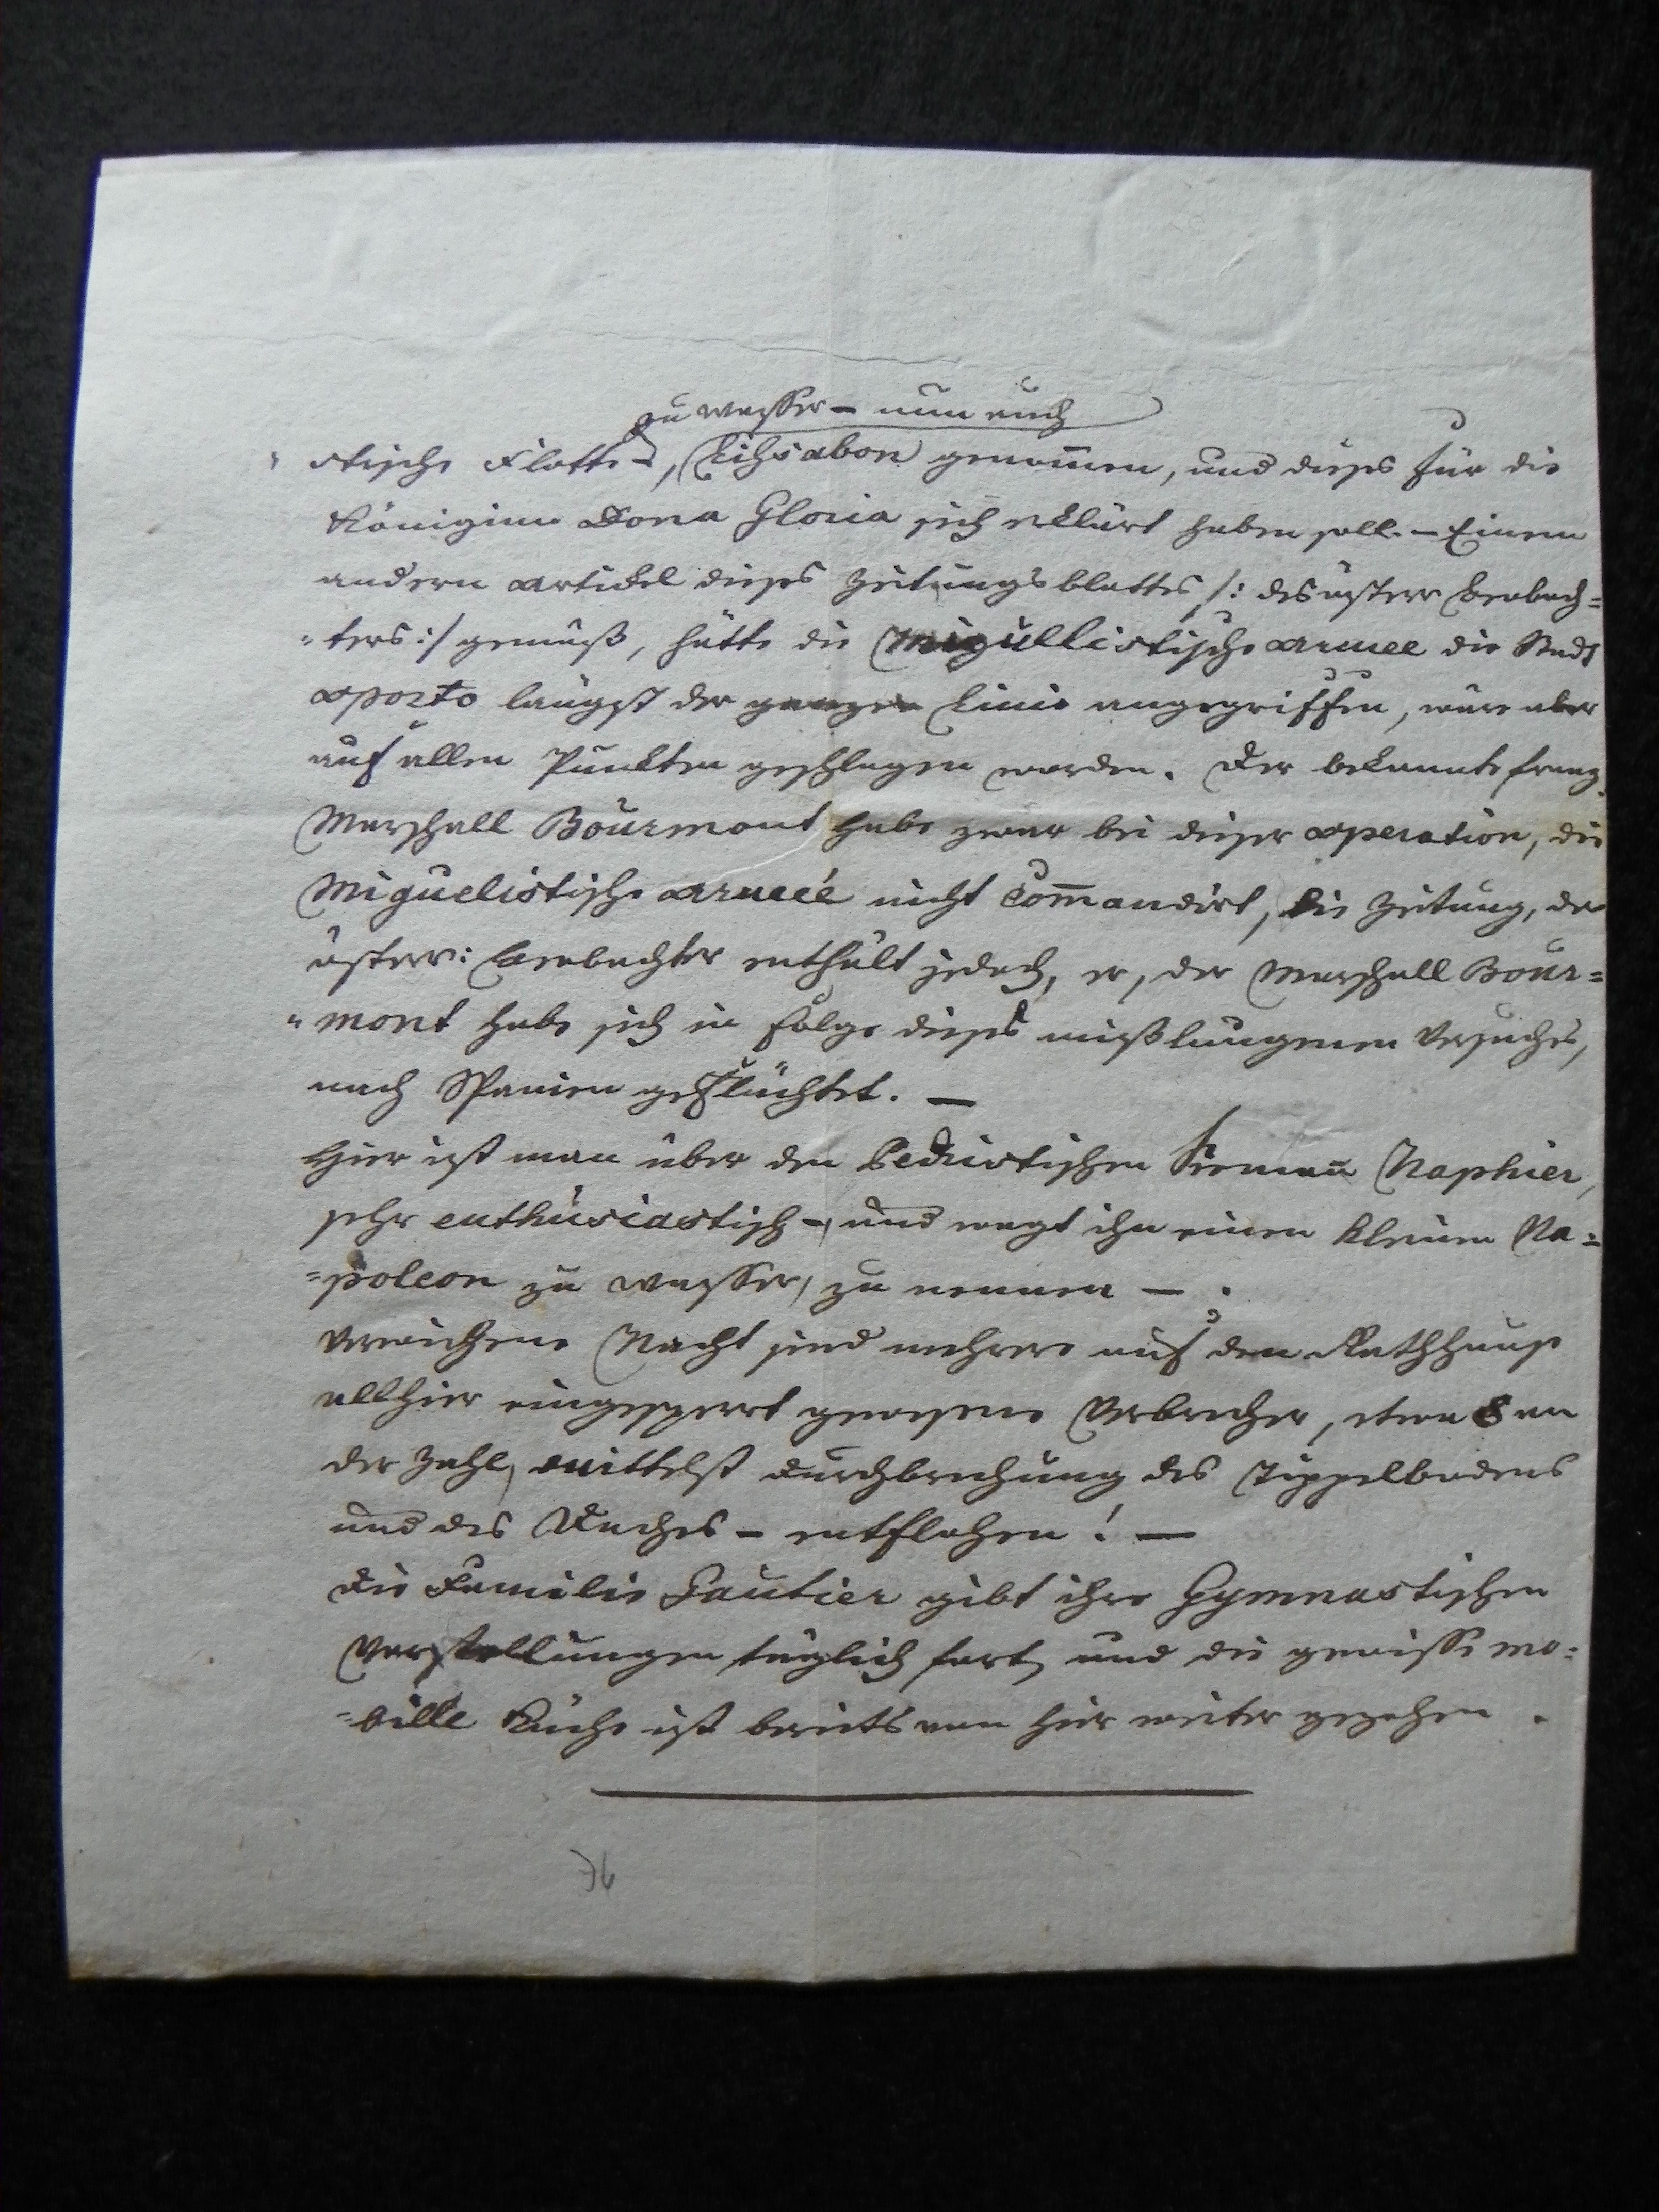 zu wasser – nun auch
stische Flotte –, Lihsabon genom̅en, und dieses für die
Königinn Dona Gloria sich erklärt haben soll. – Einem
andern Artickel dieses Zeitungsblattes /: des österr Beobach=
"ters :/ gemäß, hätte die Migüllistische Armee die Stadt
Oporto längst der ganzen Linie angegriffen, wäre aber
auf allen Punkten geschlagen worden. Der bekannte franz.
Marschall Bourmont habe zwar bei dieser Operation, die
Miguelistische Armeé nicht Com̅andirt, die Zeitung, der
österr: Beobachter enthält jedoch, er, der Marschall Bour=
"mont habe sich in Folge dieses mißlungenen Versuches,
nach Spanien geflüchtet. –
Hier ist man über den Pedristischen Seeman̅ Naphier,
sehr enthusiastisch –, und wagt ihn einen kleinen Na=
=poleon zu wasser, zu nennen – .
Verwichene Nacht sind mehrere auf dem Rathhause
allhier eingesperrt gewesene Verbrecher, etwa 8 an
der Zahl, mittelst Durchbrechung des Tippelbodens
und des Daches – entflohen! –
Die Familie Gautier gibt ihre Gymnastischen
Vorstellungen täglich fort, und die gewisse mo=
=bille Küche ist bereits von hier weiter gezohen .
76